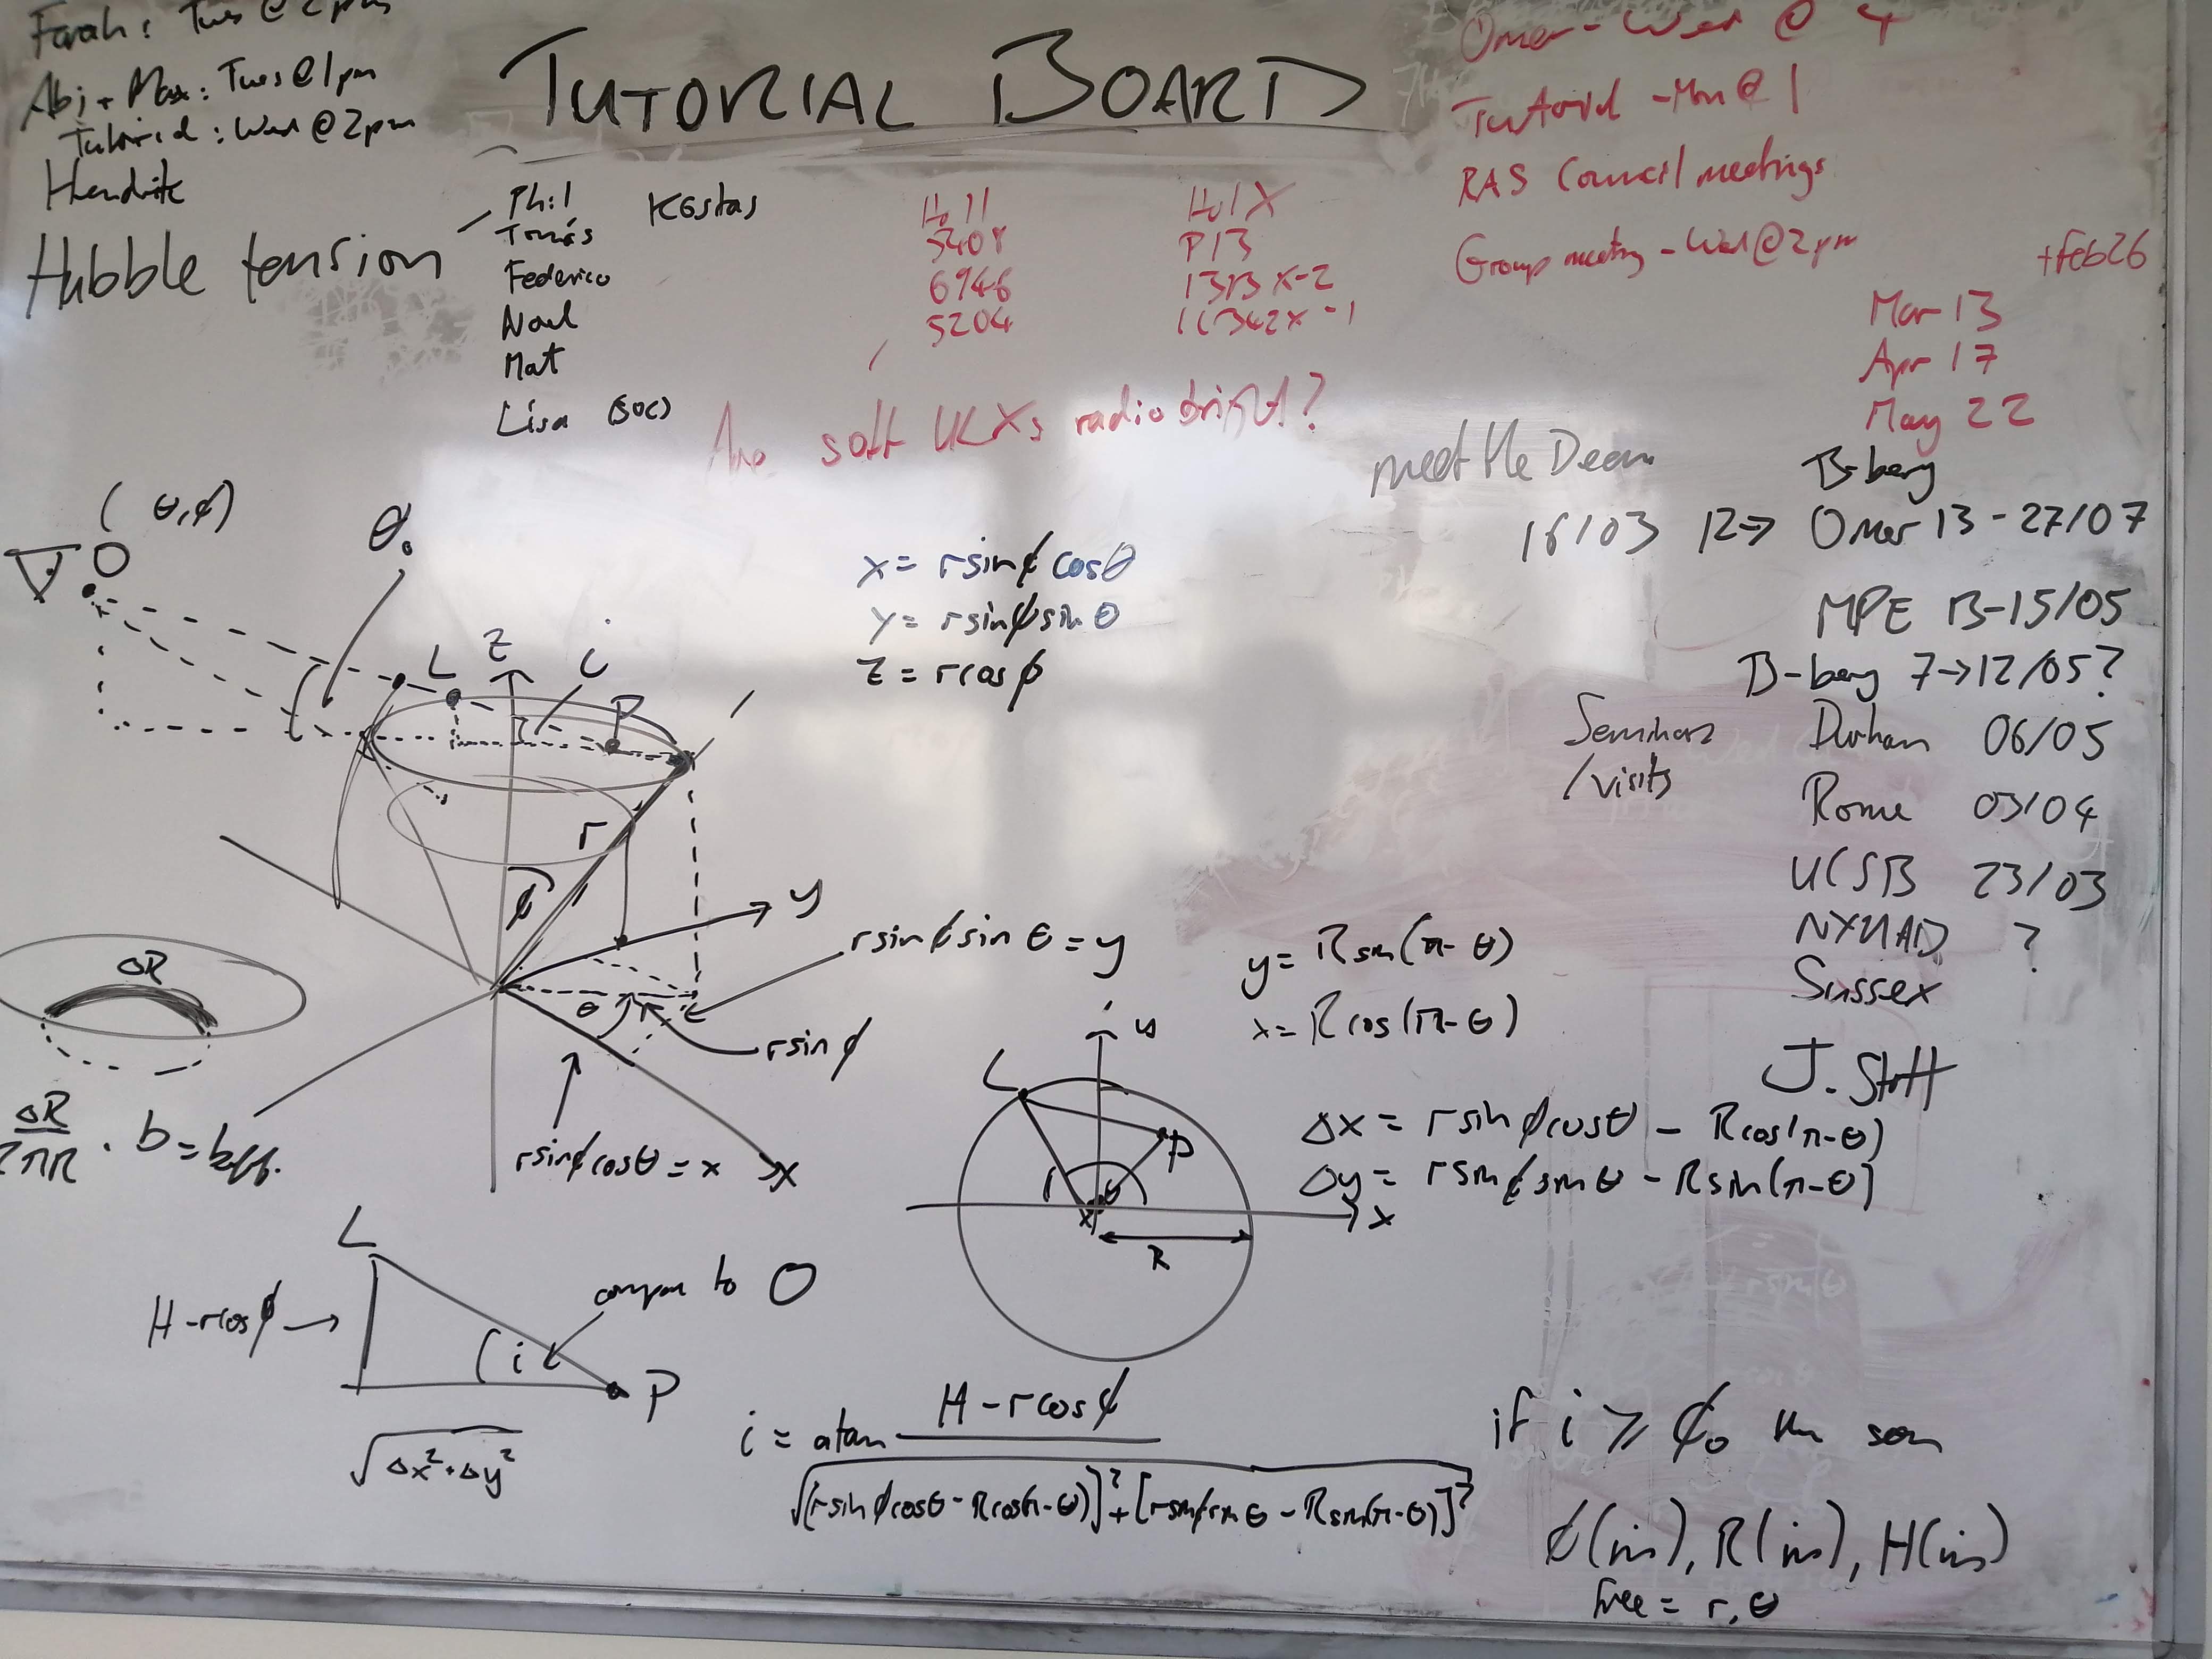 Farah: Tues @ 2pm
Abi + Max: Tues @ 1pm
Tutorial: Wed @ 2pm
Hendrik
Hubble tension
TUTORIAL BOARD
Phil Kostas
Tomás
Federico
Noel
Mat
Lisa (SOC)
Ho II
5408
6946
5204
Ho IX
P13
1313 X-2
soft ULXs radio bright?
Omer - Wed @ 4
Tutorial - Mon @ 1
RAS Council meetings
Group meeting - Wed @ 2pm
+ Feb 26
Mar 13
Apr 17
May 22
meet the Dean
16/03 12→
B-berg
Omer 13 - 27/07
MPE 13-15/05
B-berg 7→12/05?
Seminars
/visits
Durham 06/05
Rome 03/04
UCSB 23/03
NYUAD ?
Sussex
J. Stott
(θ,ϕ)
O
θ₀
L
z
i
P
x = r sinϕ cosθ
y = r sinϕ sinθ
z = r cosϕ
r
ϕ
y
θ
r sinϕ sinθ = y
r sinϕ
r sinϕ cosθ = x
x
ΔR
ΔR
2πR . b = beff.
y = R sin(π-θ)
x = R cos(π-θ)
y
L
P
θ
x
R
Δx = r sinϕ cosθ - R cos(π-θ)
Δy = r sinϕ sinθ - R sin(π-θ)
L
H - r cosϕ →
i
compare to O
P
√Δx²+Δy²
i = atan H - r cosϕ
√[r sinϕ cosθ - R cos(π-θ)]² + [r sinϕ sinθ - R sin(π-θ)]²
if i ⩾ ϕ₀ then seen
ϕ(ṁ), R(ṁ), H(ṁ)
Free = r, θ